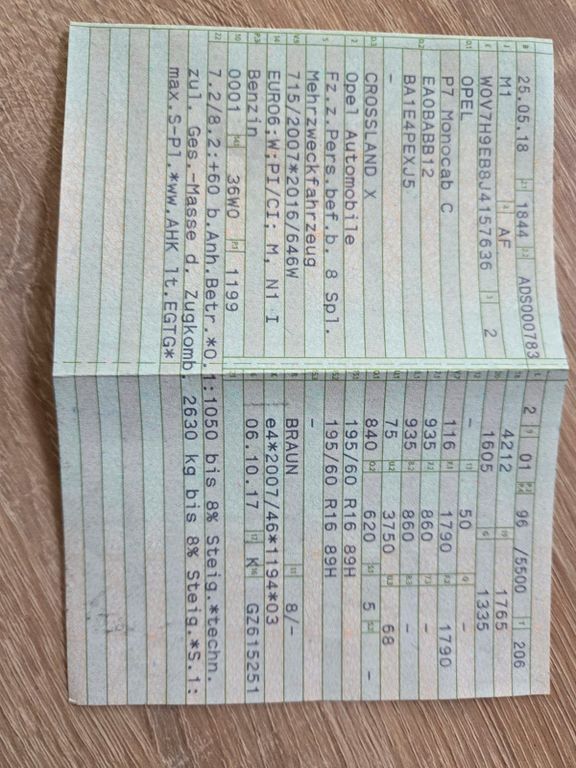 25.05.18 1844 ADS000783
M1 AF
W0V7H9EB8J4157636 2
OPEL
P7 Monocab C
EA0BABB12
BA1E4PEXJ5
-
CROSSLAND X
Opel Automobile
Fz.z.Pers.bef.b. 8 Spl.
Mehrzweckfahrzeug
715/2007*2016/646W
EURO6:W:PI/CI: M, N1 I
Benzin
0001 36W0 1199
2 01 96 /5500 206
4212 1765
1605 1335
- 50 -
116 1790 1790
935 860 -
935 860 -
75 3750 68
840 620 5 -
195/60 R16 89H
195/60 R16 89H
-
BRAUN 8/-
e4*2007/46*1194*03
06.10.17 K GZ615251
7.2/8.2:+60 b.Anh.Betr.*O.1:1050 bis 8% Steig.*techn.
zul. Ges.-Masse d. Zugkomb. 2630 kg bis 8% Steig.*S.1:
max.S-Pl.*ww.AHK lt.EGTG*